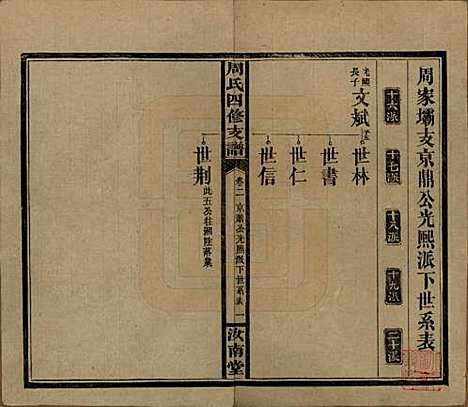 周家壩支京鼎公光熙派下世系表
十六派
十七派
十八派
十九派
二十派
光熙長子
文斌
世林
世書
世仁
世信
周氏四修支譜
卷二
京鼎公光熙派下世系表
一
汝南堂
世荆
此五公往湖陸落業